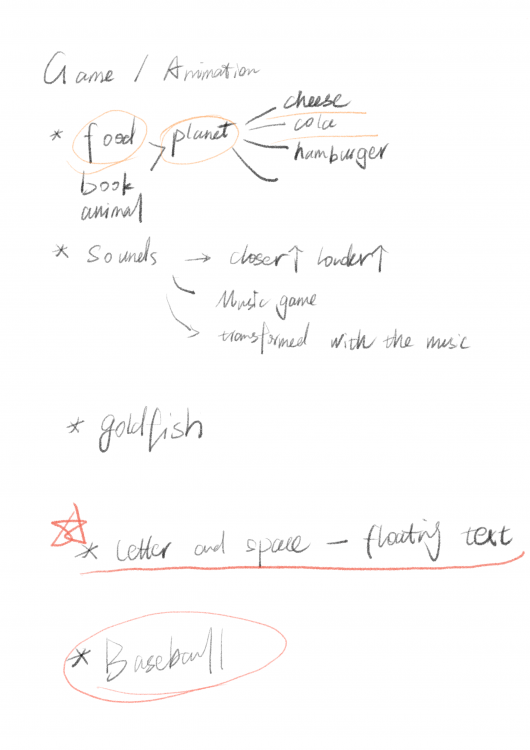 Game / Animation
cheese
* food > planet cola
hamburger
book
animal
* Sounds → closer↑ louder↑
Music game
transformed with the music
* goldfish
* Letter and space – floating text
* Baseball